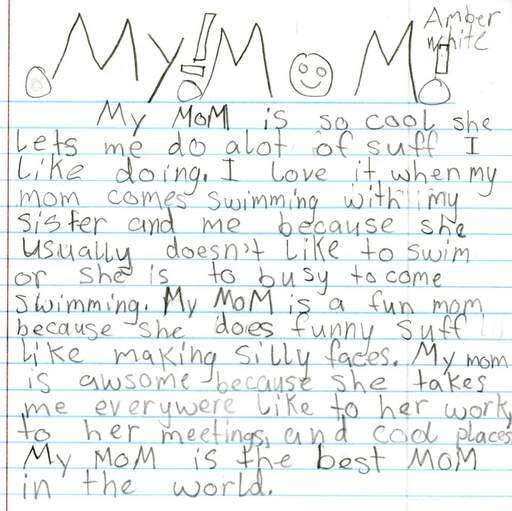 Amber
White
My! MoM!
My MoM is so cool she
Lets me do alot of suff I
Like doing. I Love it when my
mom comes swimming with my
sister and me because she
usually doesn't Like to swim
or she is to busy to come
swimming. My MoM is a fun mom
because she does funny suff
Like making silly faces. My mom
is awsome because she takes
me everywere Like to her work,
to her meetings, and cool places
My MoM is the best MoM
in the world.